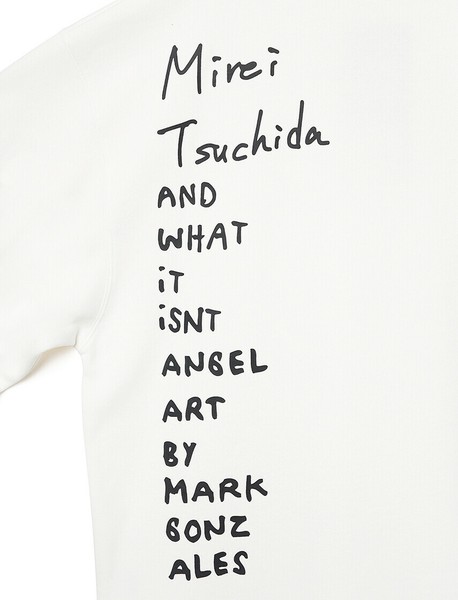 Mirei
Tsuchida
AND
WHAT
iT
iSNT
ANGEL
ART
BY
MARK
GONZ
ALES